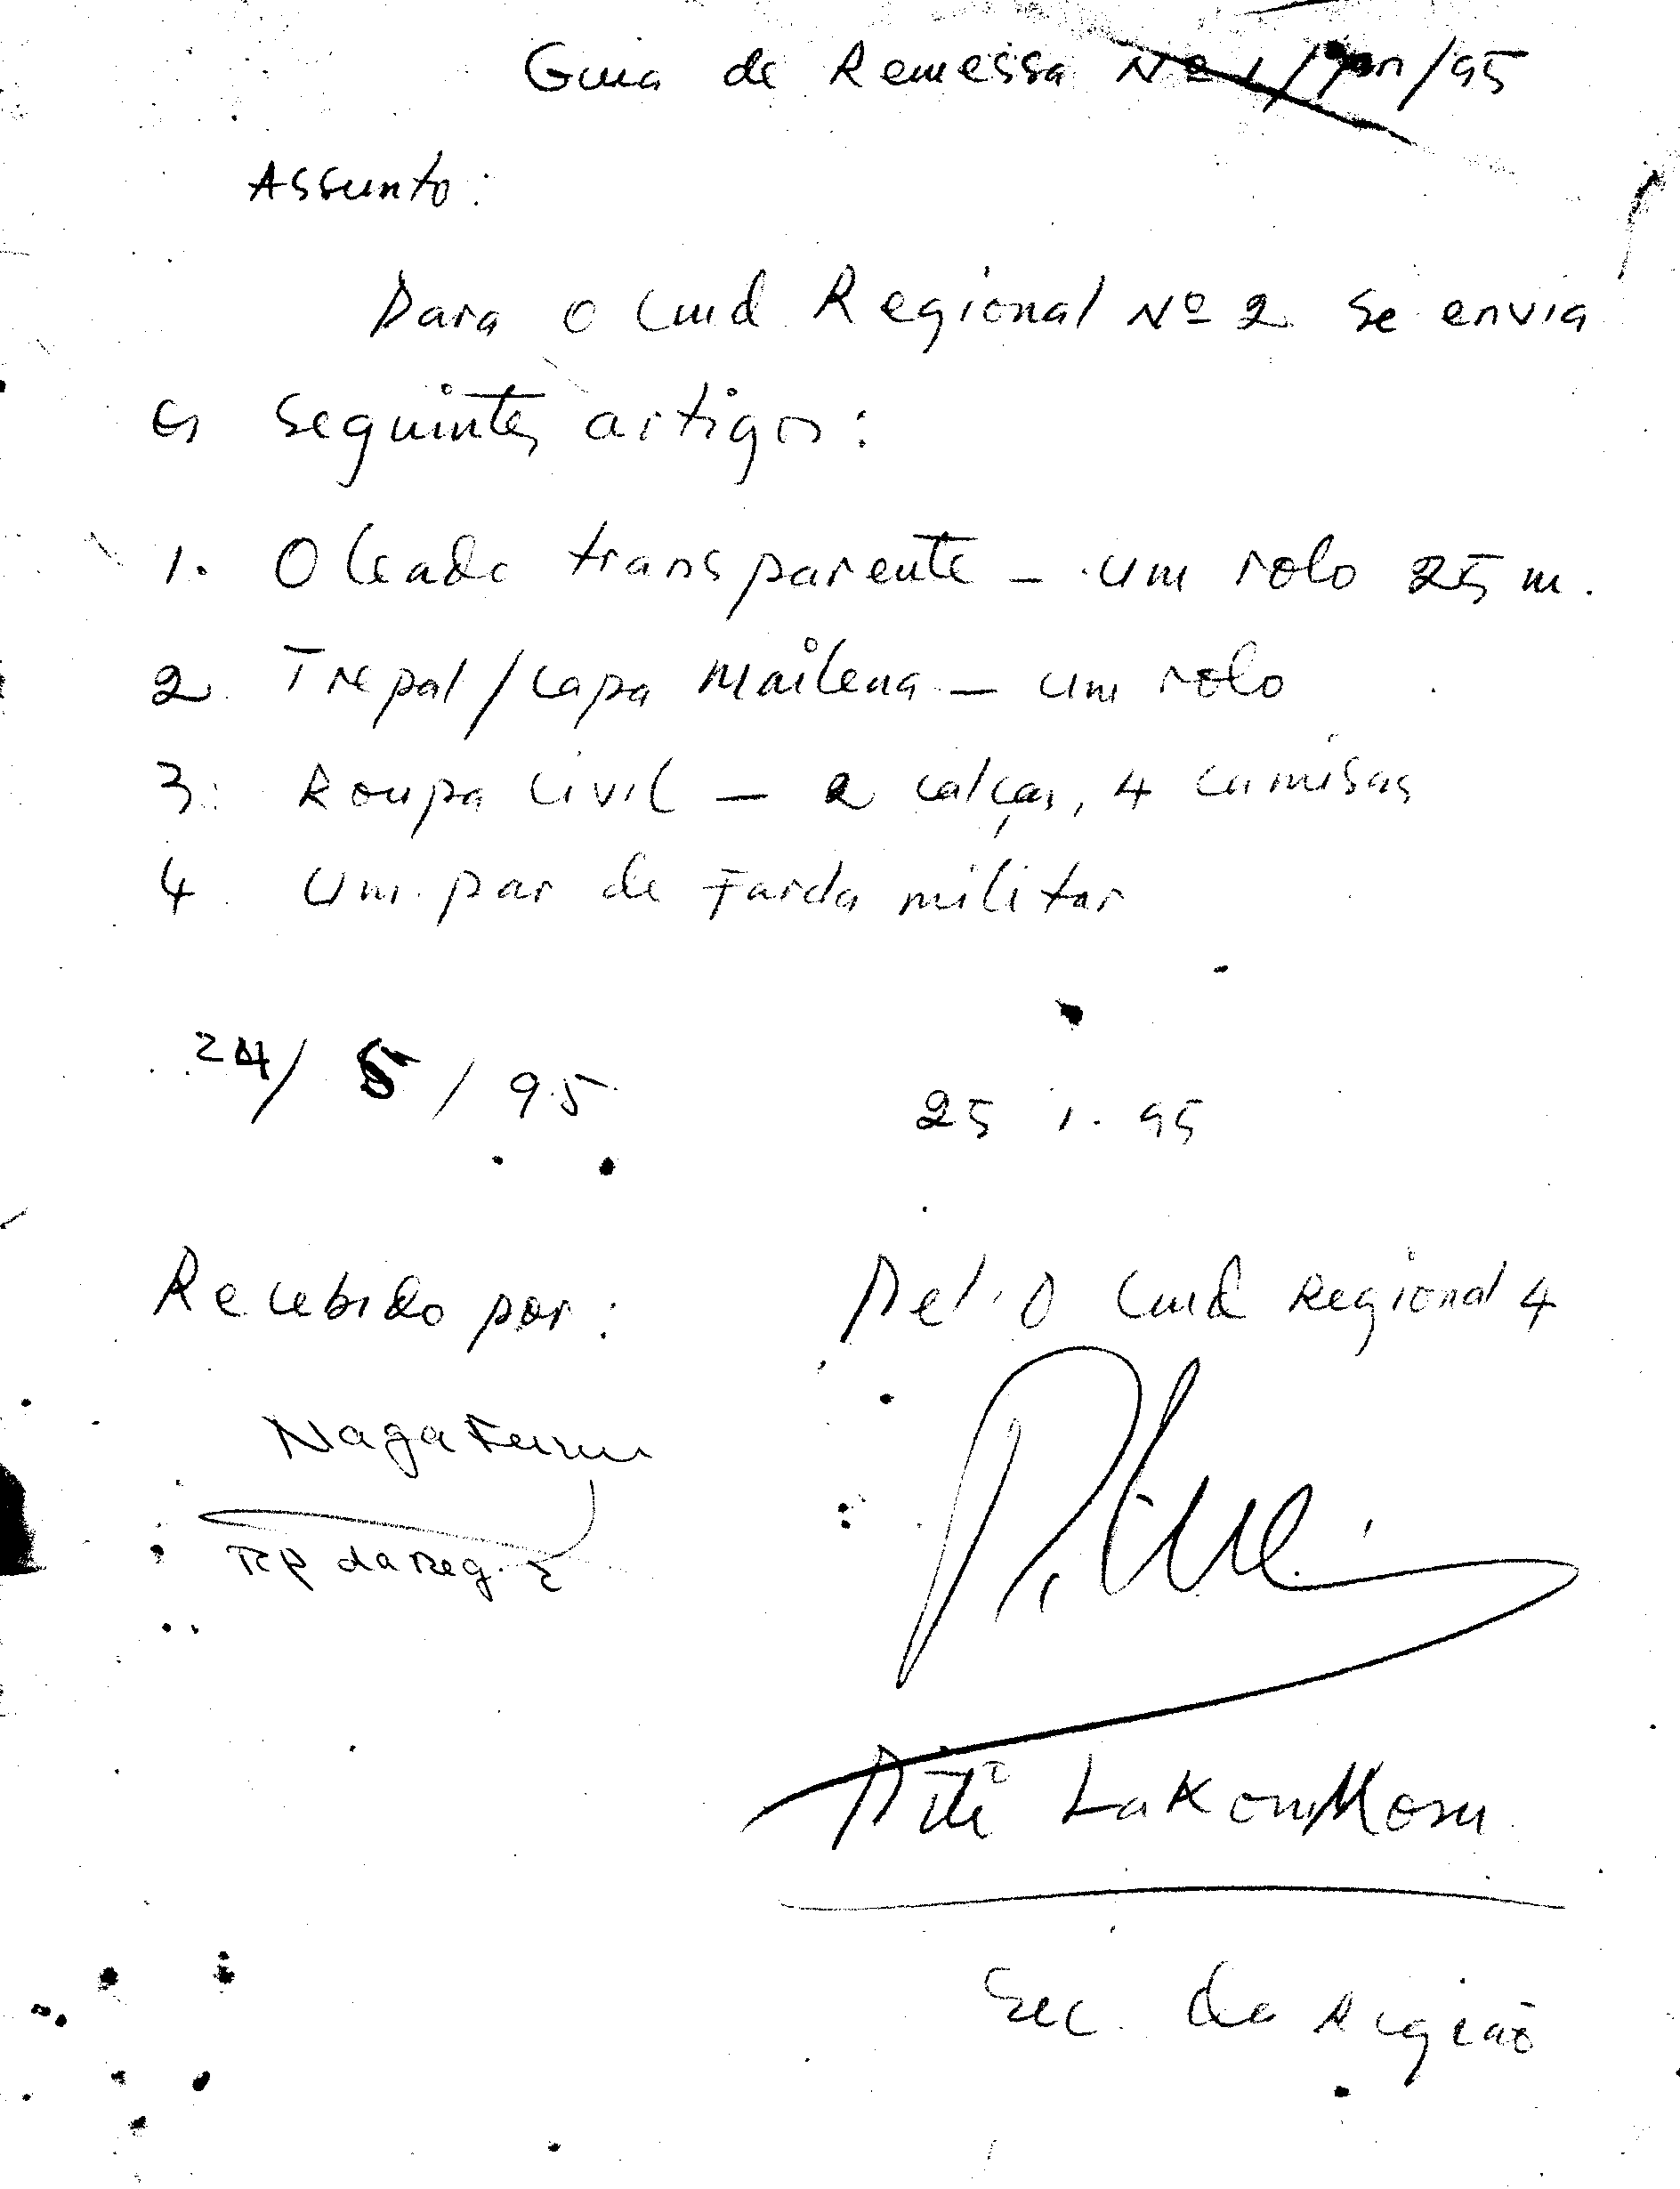 Guia de Remessa Nº 1/Jan/95
Assunto:
Para o Cmd Regional Nº 2 se envia
os seguintes artigos:
1. Oleado transparente - um rolo 25 m.
2. Trepal/capa Mailena - um rolo
3. Roupa civil - 2 calças, 4 camisas
4. Um par de Farda militar
24/5/95
25 1. 95
Recebido por:
Pel'O Cmd Regional 4
Naga
RP da Reg. 2
Piti LaKon Mosu
Sec. da Região